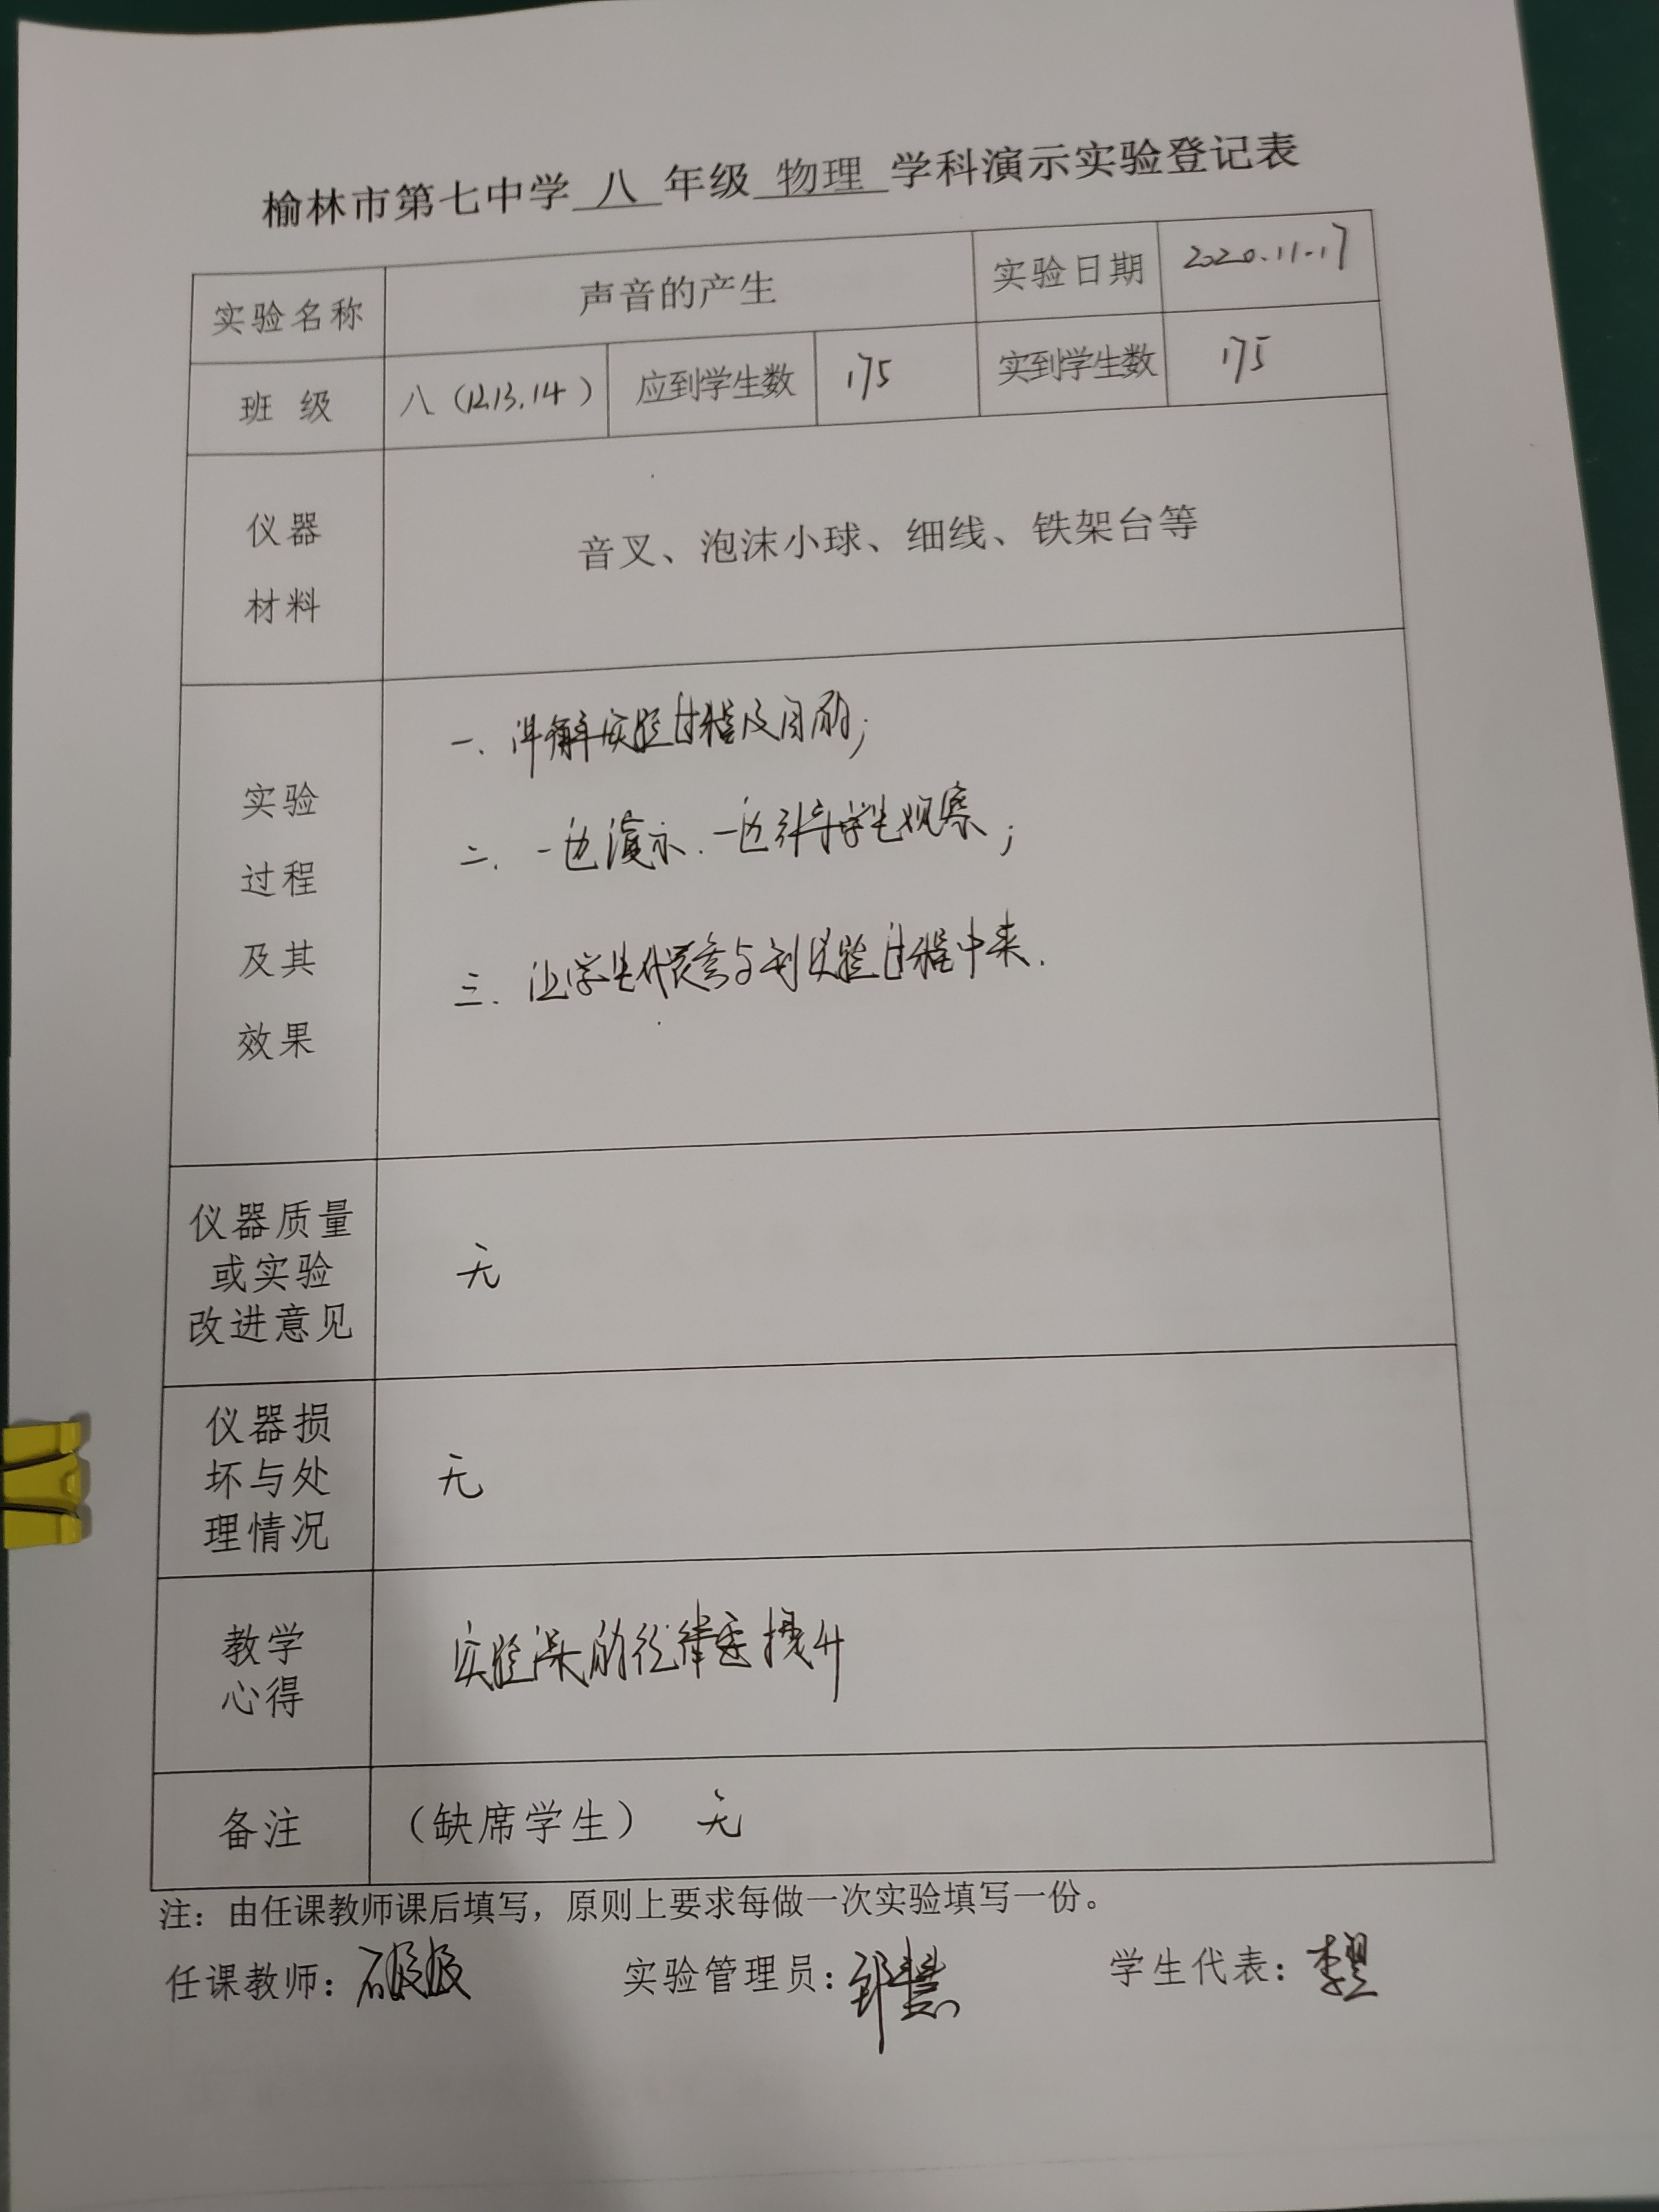 榆林市第七中学 八 年级 物理 学科演示实验登记表
实验名称 声音的产生 实验日期 2020.11.17
班 级 八（12.13.14） 应到学生数 175 实到学生数 175
仪器
材料
音叉、泡沫小球、细线、铁架台等
实验
过程
及其
效果
一、讲解实验过程及目的;
二、一边演示.一边引导学生观察;
三、让学生代表参与到实验过程中来.
仪器质量
或实验
改进意见
无
仪器损
坏与处
理情况
无
教学
心得
实验课的纪律要提升
备注 （缺席学生） 无
注：由任课教师课后填写，原则上要求每做一次实验填写一份。
任课教师： 实验管理员： 学生代表：